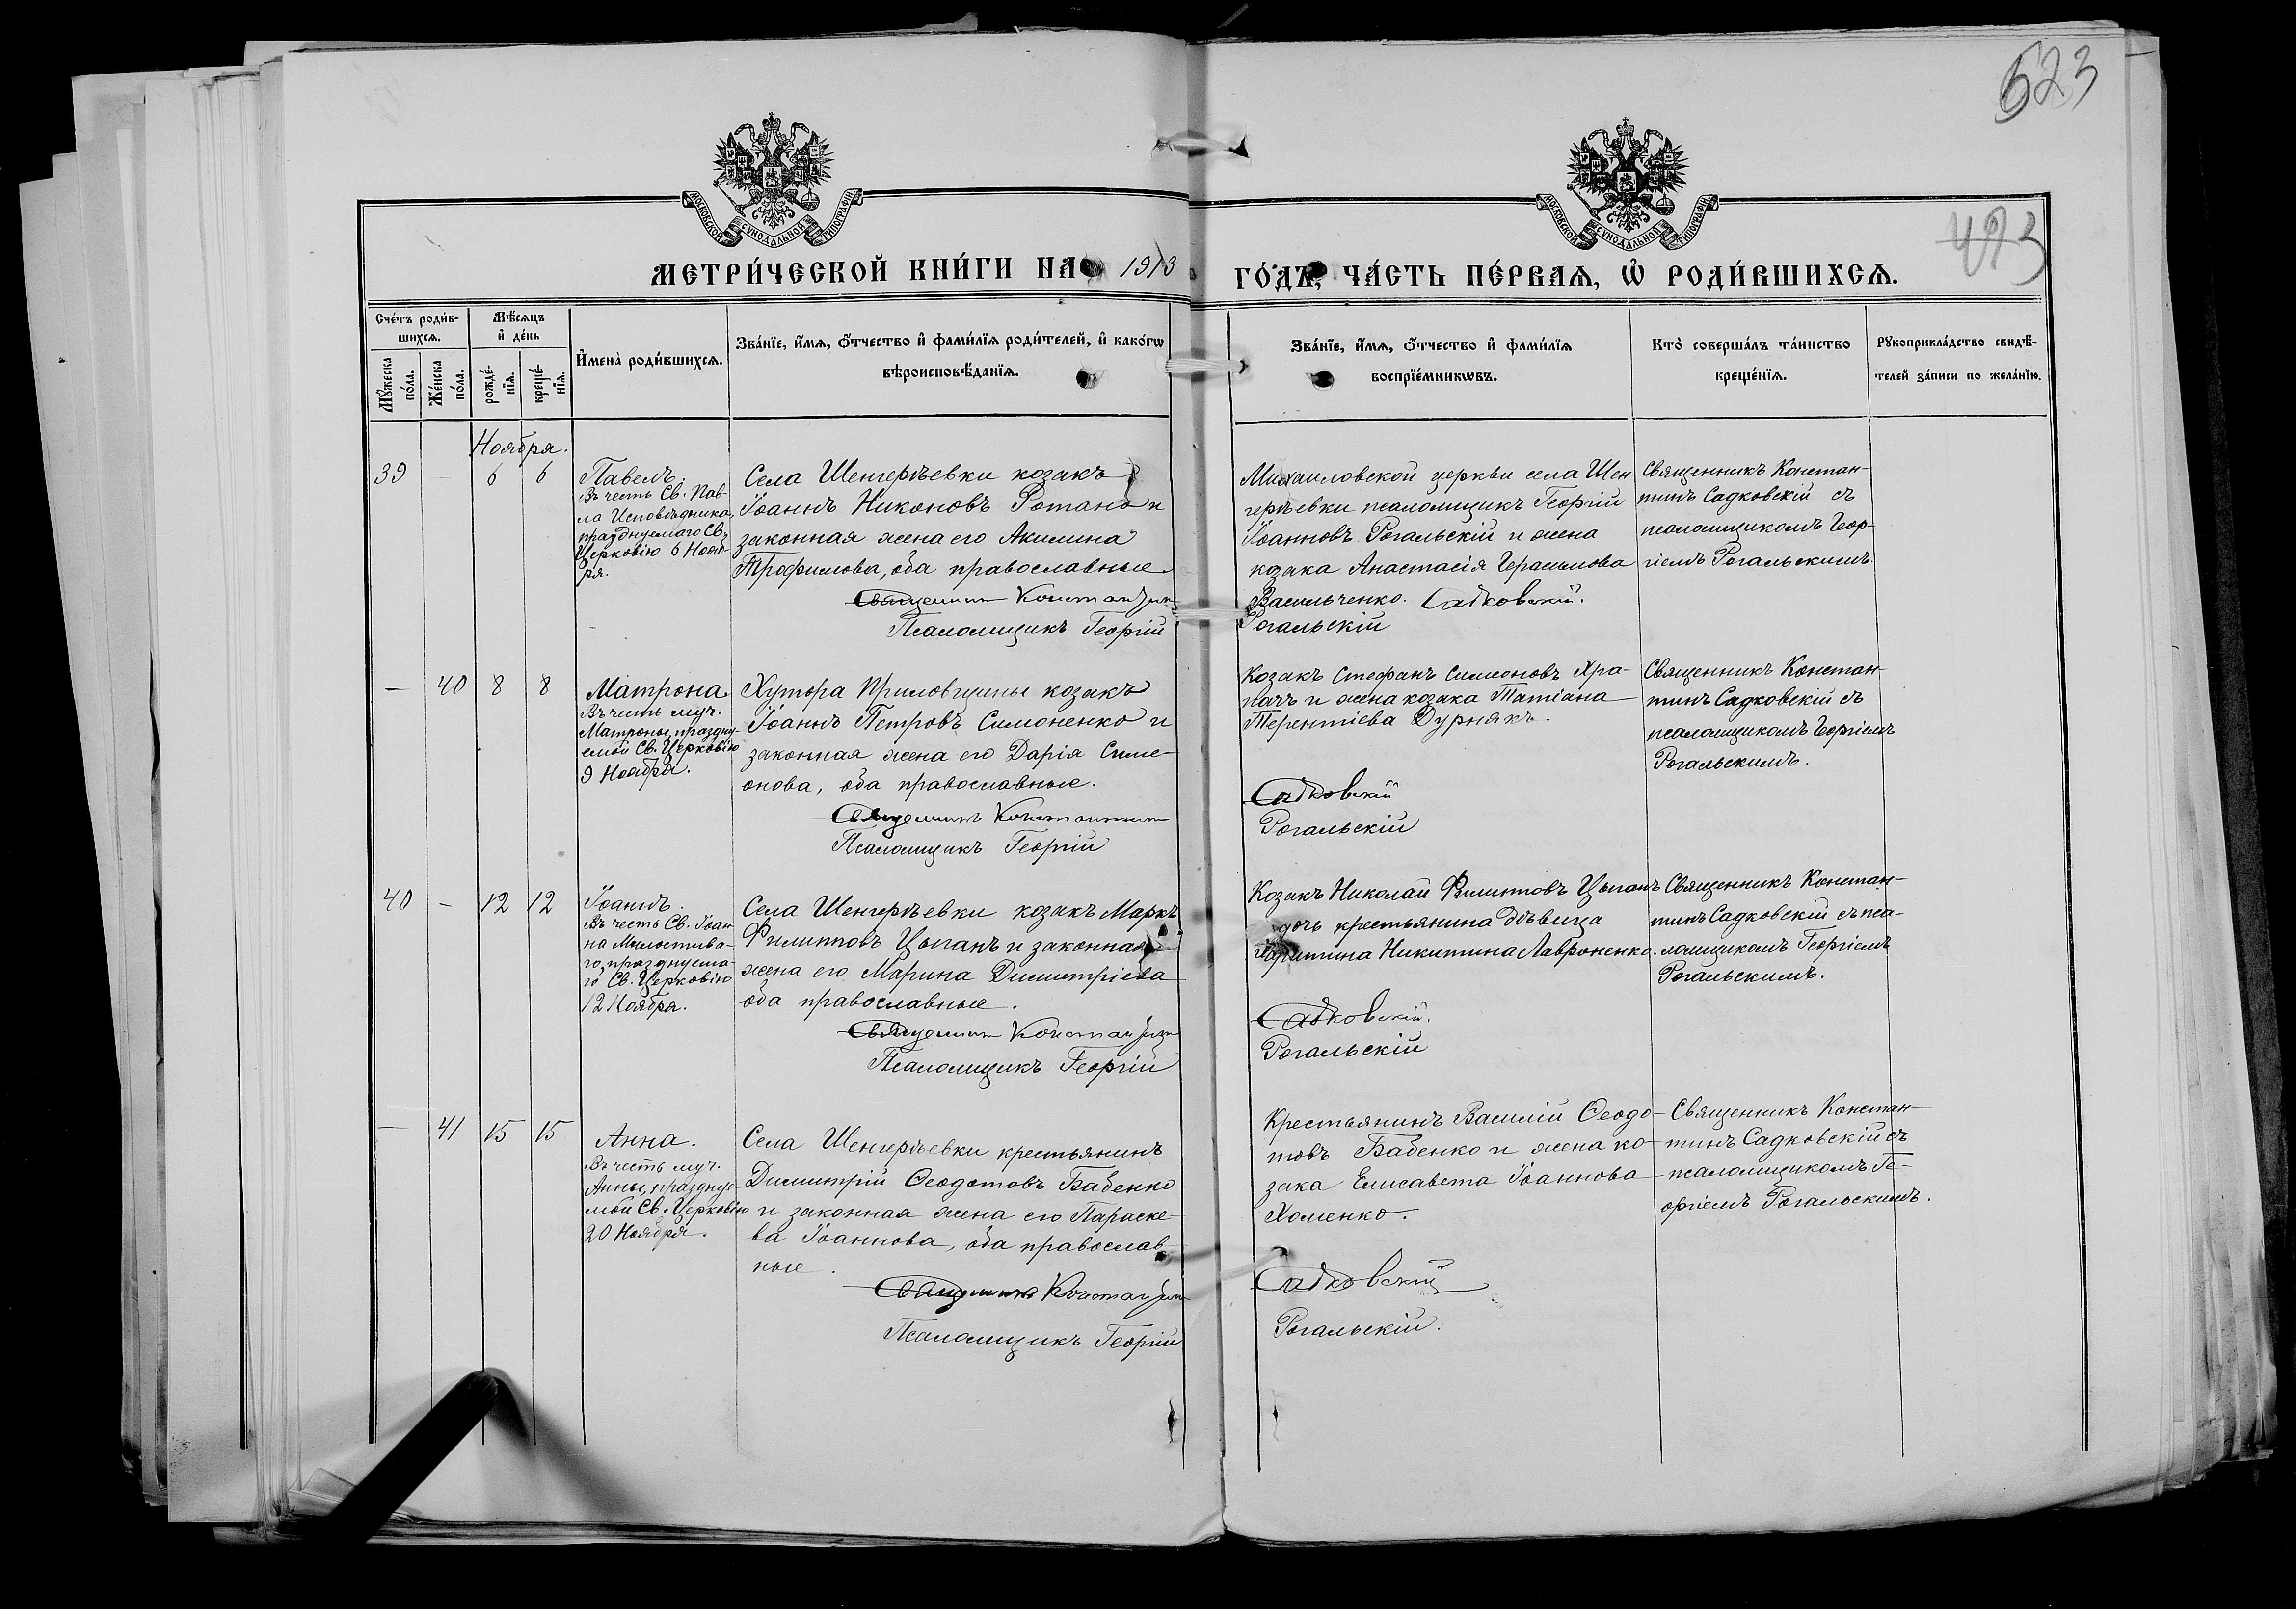 523
493
МОСКОВСКОЙ СѴНОДАЛЬНОЙ ТИПОГРАФІИ
МОСКОВСКОЙ СѴНОДАЛЬНОЙ ТИПОГРАФІИ
МЕТРИ́ЧЕСКОЙ КНИ́ГИ НА 1913 ГО́ДЪ, ЧА́СТЬ ПЕ́РВАѦ, Ѽ РОДИ́ВШИХСѦ.
Сче́тъ роди́в-
шихсѧ.
Мꙋ́жеска по́ла.
Же́нска по́ла.
Мѣ́сѧцъ
и҆ де́нь
рожде́-
нїѧ.
креще́-
нїѧ.
И҆мена̀ роди́вшихсѧ.
Зва́нїе, и҆́мѧ, ѻ҆́тчество и҆ фами́лїѧ роди́телей, и҆ како́гѡ
вѣроисповѣ́данїѧ.
Зва́нїе, и҆́мѧ, ѻ҆́тчество и҆ фами́лїѧ
воспрїе́мникѡвъ.
Кто̀ соверша́лъ та́инство
креще́нїѧ.
Рꙋкоприкла́дство свидѣ́-
телей за́писи по жела́нїю.
Ноября.
39 — 6 6
Павелъ.
Въ честь Св. Пав-
ла Исповѣдника,
празднуемаго Св.
Церковію 6 Нояб-
ря.
Села Шенгерѣевки козакъ
Іоаннъ Никоновъ Ротань и
законная жена его Акилина
Трофимова, оба православные.
Священникъ Константинъ
Псаломщикъ Георгій
Михаиловской церкви села Шен-
герѣевки псаломщикъ Георгій
Іоанновъ Рогальскій и жена
козака Анастасія Герасимова
Васильченко. Садковскій.
Рогальскій
Священникъ Констан-
тинъ Садковскій съ
псаломщикомъ Геор-
гіемъ Рогальскимъ.
— 40 8 8
Матрона.
Въ честь муч.
Матроны, праздну-
емой Св. Церковію
9 Ноября.
Хутора Приловщины козакъ
Іоаннъ Петровъ Симоненко и
законная жена его Дарія Симе-
онова, оба православные.
Священникъ Константинъ
Псаломщикъ Георгій
Козакъ Стефанъ Симеоновъ Хра-
пачъ и жена козака Татіана
Терентіева Дурнякъ.
Садковскій
Рогальскій
Священникъ Констан-
тинъ Садковскій съ
псаломщикомъ Георгіемъ
Рогальскимъ.
40 — 12 12
Іоаннъ.
Въ честь Св. Іоан-
на Милостива-
го, празднуема-
го Св. Церковію
12 Ноября.
Села Шенгерѣевки козакъ Маркъ
Филипповъ Цыганъ и законная
жена его Марина Димитріева
оба православные.
Священникъ Константинъ
Псаломщикъ Георгій
Козакъ Николай Филипповъ Цыганъ
дочь крестьянина дѣвица
Харитина Никитина Лавроненко.
Садковскій.
Рогальскій
Священникъ Констан-
тинъ Садковскій съ пса-
ломщикомъ Георгіемъ
Рогальскимъ.
— 41 15 15
Анна.
Въ честь муч.
Анны, празднуе-
мой Св. Церковію
20 Ноября.
Села Шенгерѣевки крестьянинъ
Димитрій Ѳеодотовъ Бабенко
и законная жена его Параске-
ва Іоаннова, оба православ-
ные.
Священникъ Константинъ
Псаломщикъ Георгій
Крестьянинъ Василій Ѳеодо-
товъ Бабенко и жена ко-
зака Елисавета Іоаннова
Хоменко.
Садковскій
Рогальскій.
Священникъ Констан-
тинъ Садковскій съ
псаломщикомъ Ге-
оргіемъ Рогальскимъ.